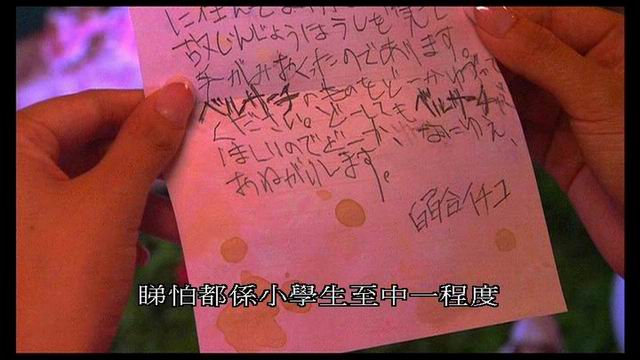 に住んで
故じんじょうほうしを見て
手がみおくたのであります。
ベルサーチのものをどーかゆづって
ください。どーしてもベルサーチが
ほしいのでどーか、なにゆえ、
おねがいします。
白百合イチコ
睇怕都係小學生至中一程度